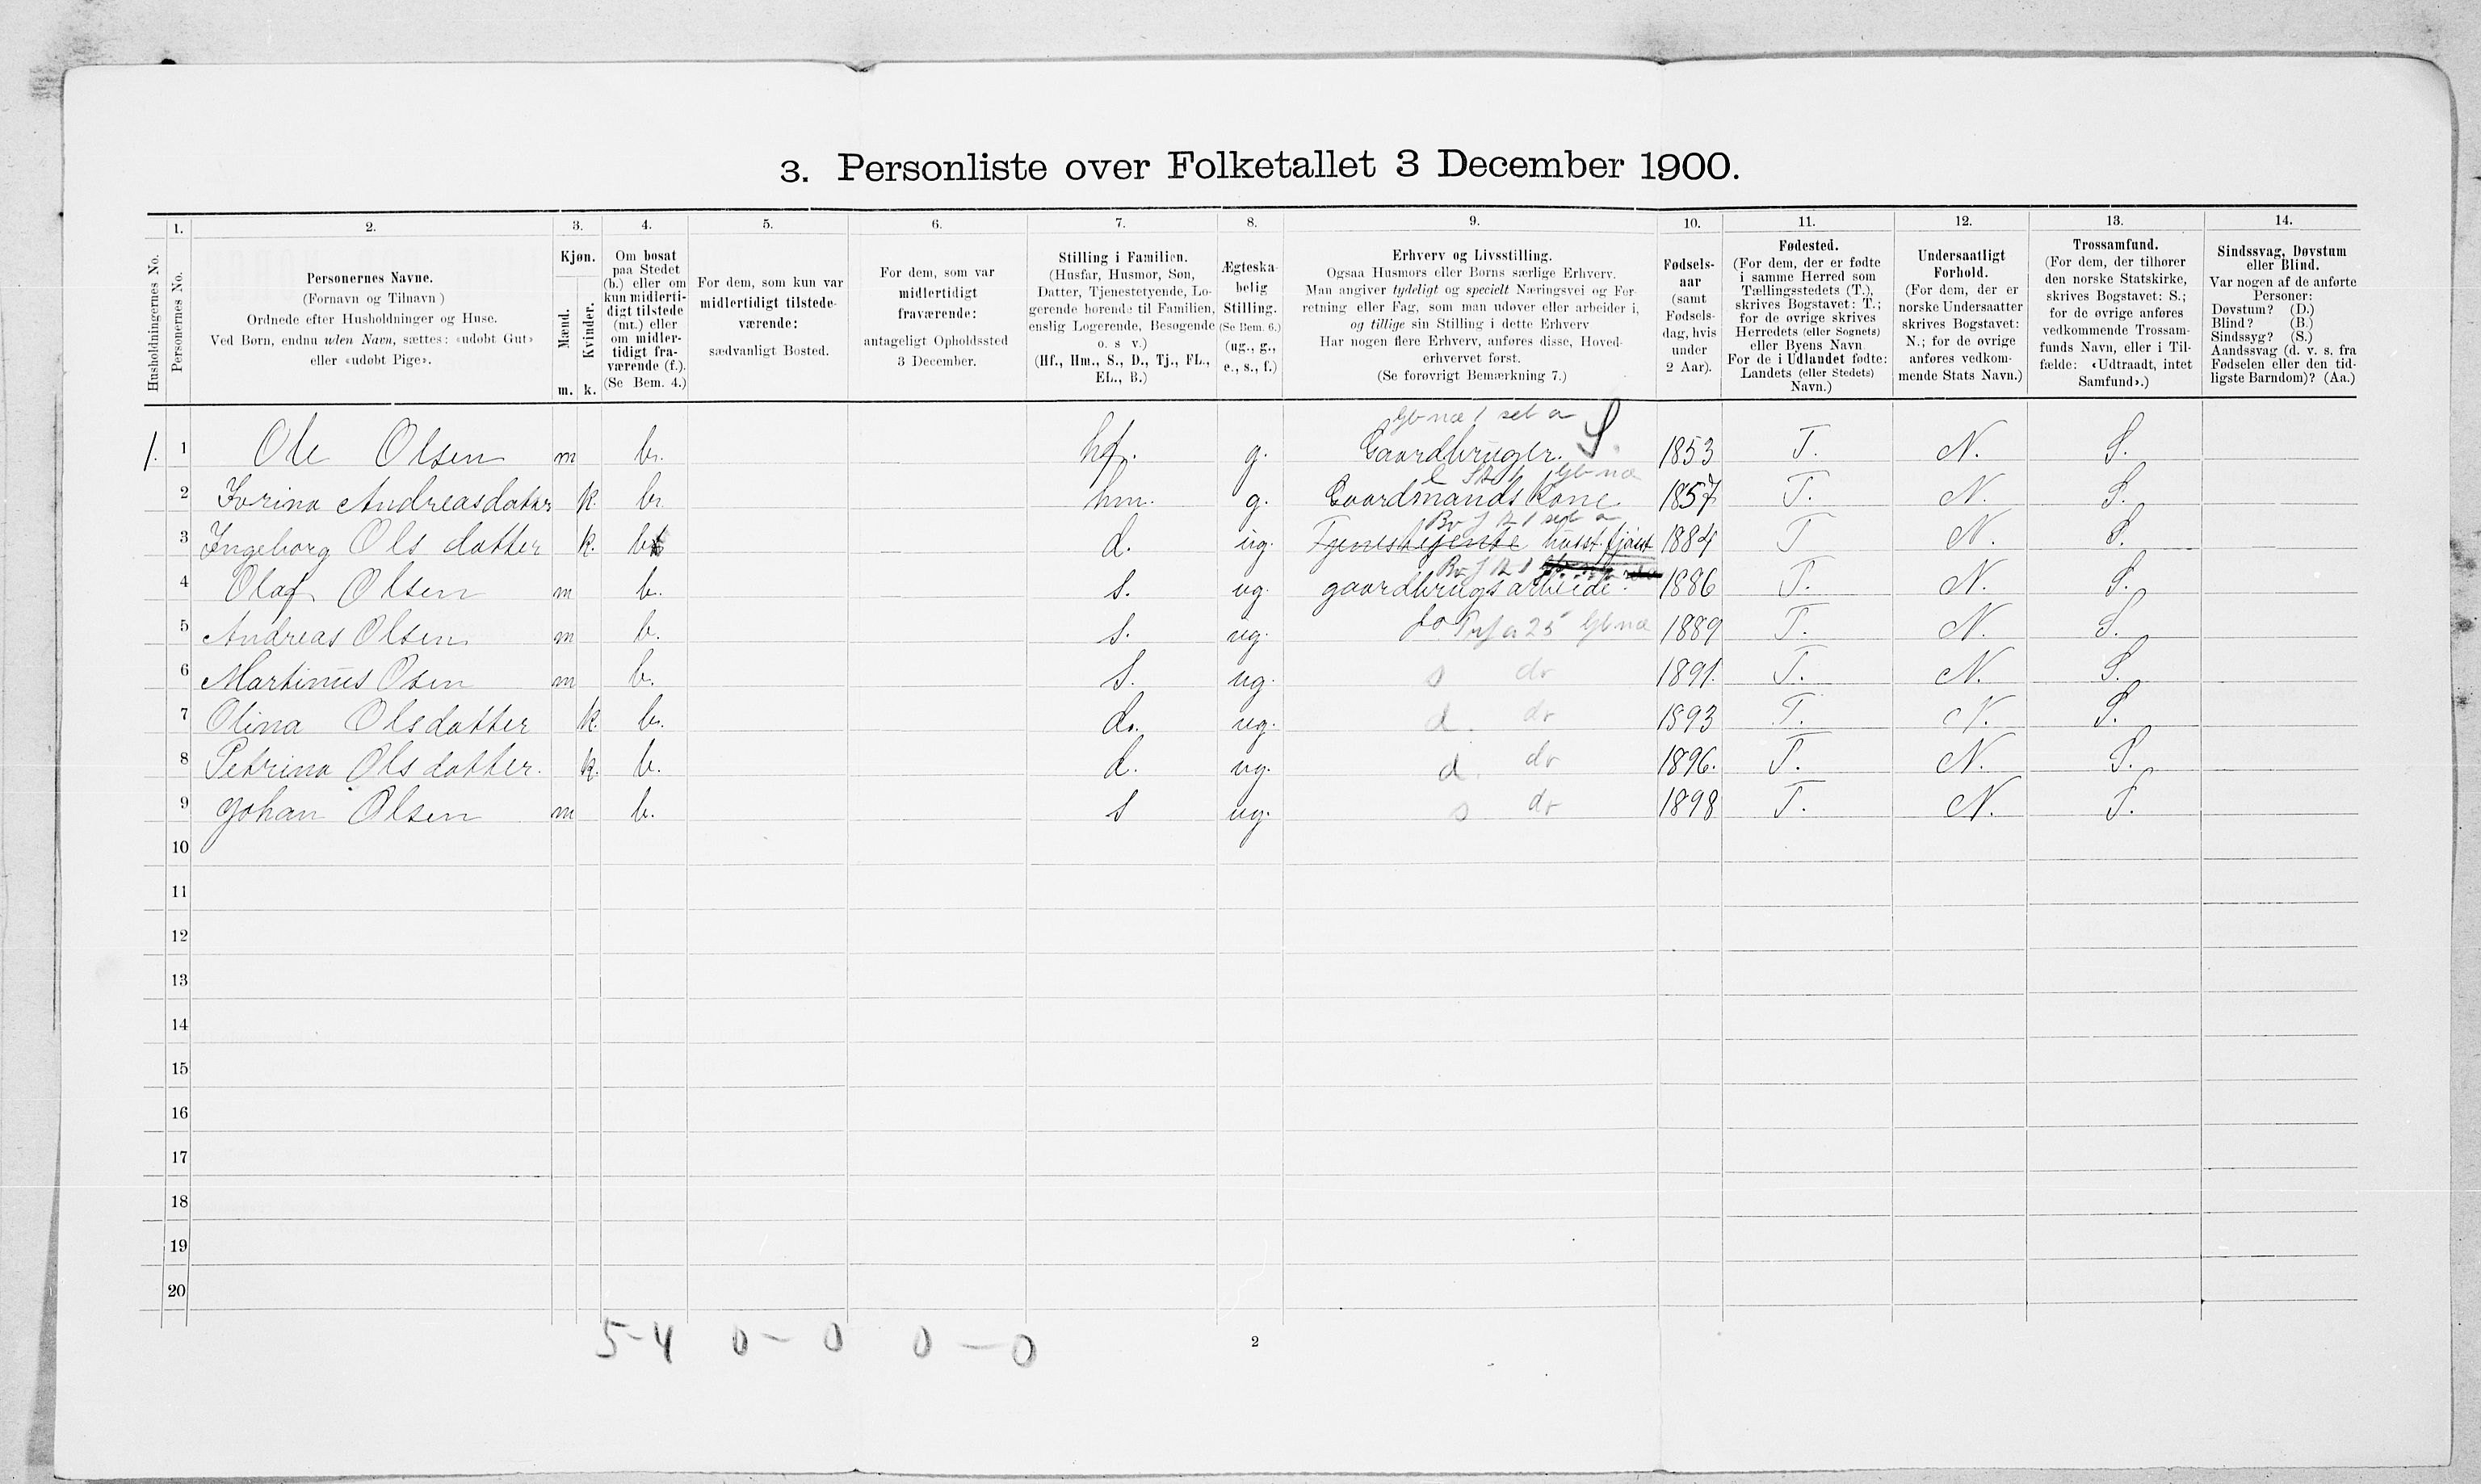 3. Personliste over Folketallet 3 December 1900.
Husholdningernes No.
1.
Personernes No.
2.
Personernes Navne.
(Fornavn og Tilnavn)
Ordnede efter Husholdninger og Huse.
Ved Børn, endnu uden Navn, sættes: «udøbt Gut»
eller «udøbt Pige».
3.
Kjøn.
Mænd.
Kvinder.
m. k.
4.
Om bosat
paa Stedet
(b.) eller om
kun midlerti-
digt tilstede
(mt.) eller
om midler-
tidigt fra-
værende (f.).
(Se Bem. 4.)
5.
For dem, som kun var
midlertidigt tilstede-
værende:
sædvanligt Bosted.
6.
For dem, som var
midlertidigt
fraværende:
antageligt Opholdssted
3 December.
7.
Stilling i Familien.
(Husfar, Husmor, Søn,
Datter, Tjenestetyende, Lo-
gerende hørende til Familien,
enslig Logerende, Besøgende
o. s v.)
(Hf., Hm., S., D., Tj., FL.,
EL., B.)
8.
Ægteska-
belig
Stilling.
(Se Bem. 6.)
(ug., g.,
e., s., f.)
9.
Erhverv og Livsstilling.
Ogsaa Husmors eller Børns særlige Erhverv.
Man angiver tydeligt og specielt Næringsvei og For-
retning eller Fag, som man udøver eller arbeider i,
og tillige sin Stilling i dette Erhverv
Har nogen flere Erhverv, anføres disse, Hoved-
erhvervet først.
(Se forøvrigt Bemærkning 7.)
10.
Fødsels-
aar
(samt
Fødsels-
dag, hvis
under
2 Aar).
11.
Fødested.
(For dem, der er fødte
i samme Herred som
Tællingsstedets (T.),
skrives Bogstavet: T.;
for de øvrige skrives
Herredets (eller Sognets)
eller Byens Navn
For de i Udlandet fødte:
Landets (eller Stedets)
Navn.)
12.
Undersaatligt
Forhold.
(For dem, der er
norske Undersaatter
skrives Bogstavet:
N.; for de øvrige
anføres vedkom-
mende Stats Navn.)
13.
Trossamfund.
(For dem, der tilhører
den norske Statskirke,
skrives Bogstavet: S.;
for de øvrige anføres
vedkommende Trossam-
funds Navn, eller i Til-
fælde: «Udtraadt, intet
Samfund».)
14.
Sindssvag, Døvstum
eller Blind.
Var nogen af de anførte
Personer:
Døvstum? (D.)
Blind? (B.)
Sindssyg? (S.)
Aandssvag (d. v. s. fra
Fødselen eller den tid-
ligste Barndom)? (Aa.)
1. 1 Ole Olsen m b. hf. g. Gaardbruger. S. 1853 T. N. S.
2 Andreasdatter k. b. hm. g. Gaardmands Kone 1857 T. N. S.
3 Ingeborg Ols datter k. b d. ug. Tjenestejente 1884 T N. S.
4 Olaf Olsen m b. s. ug. gaardbrugsarbeide. 1886 T. N. S.
5 Andreas Olsen m b. s. ug. do 1889 T. N. S.
6 Martinus Osen m b. S. ug. s do 1891. T. N. S.
7 Olina Olsdatter k. b. d. ug. d. do 1893 T. N. S.
8 Petrina Ols datter. k. b. d. ug. d. do 1896. T. N. S.
9 Johan Olsen m b. s ug. s do 1898 T. N. S.
10
11
12
13
14
15
16
17
18
19
20
5-4 0-0 0-0
2